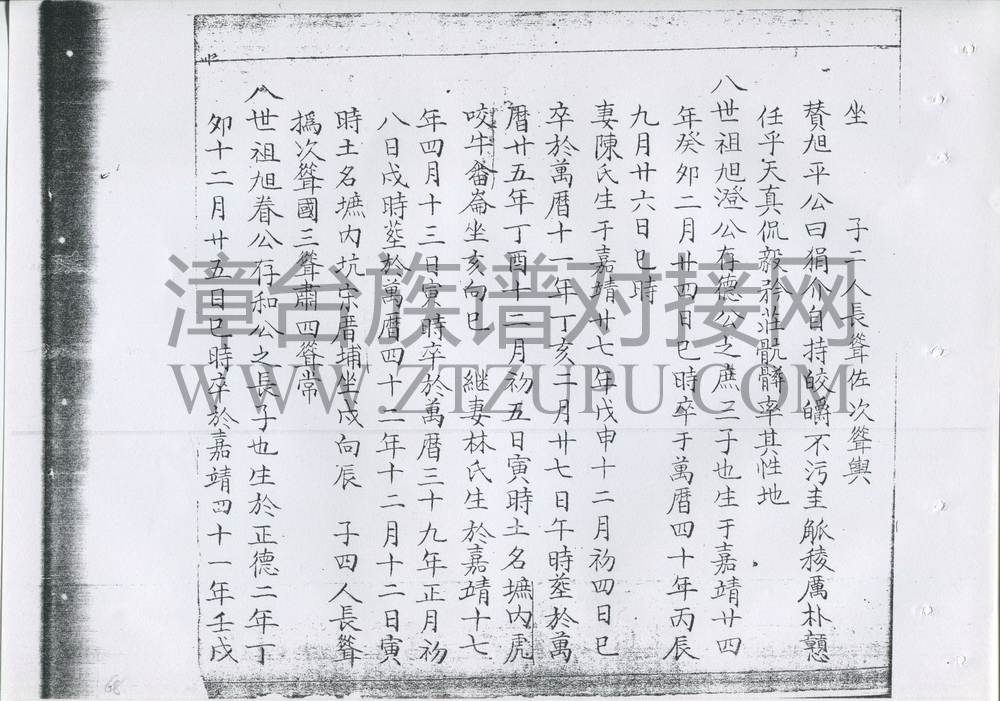 坐　子二人長聳佐次聳輿
賛旭平公曰狷介自持皎皭不污圭觚稜厲朴戇
任乎天真侃毅矜莊骯髒率其性地
八世祖旭澄公存德公之庶三子也生于嘉靖廿四
年癸夘二月廿四日巳時卒于萬曆四十年丙辰
九月廿六日巳時
妻陳氏生于嘉靖廿七年戊申十二月初四日巳
卒於萬曆十一年丁亥二月廿七日午時塟於萬
曆廿五年丁酉十二月初五日寅時土名墲內虎
咬牛畨崙坐亥向巳　継妻林氏生於嘉靖十七
年四月十三日寅時卒於萬曆三十九年正月初
八日戌時塟於萬曆四十二年十二月十二日寅
時土名墲內坑宗厝埔坐戌向辰　子四人長聳
撝次聳國三聳肅四聳常
八世祖旭眷公存和公之長子也生於正德二年丁
夘十二月廿五日巳時卒於嘉靖四十一年壬戌
漳台族谱对接网
WWW.ZTZUPU.COM
68